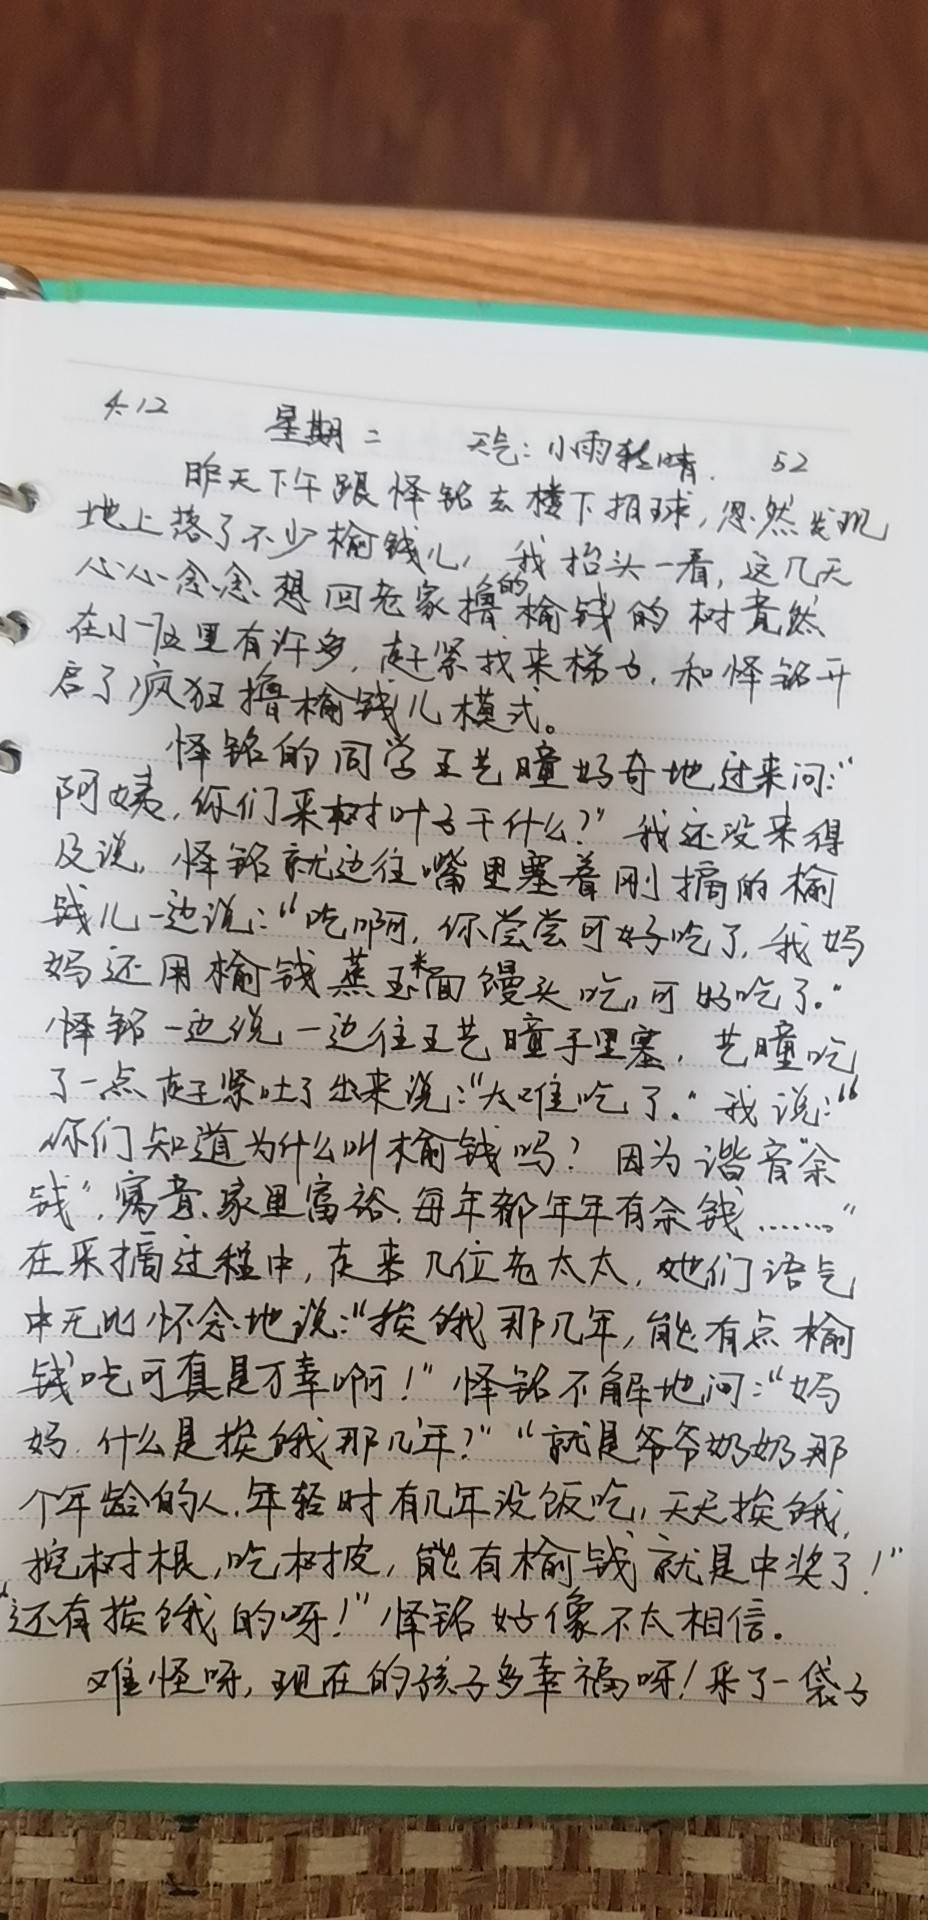 4.12 星期二 天气：小雨转晴. 52
昨天下午跟怿铭去楼下拍球，忽然发现
地上落了不少榆钱儿，我抬头一看，这几天
心心念念想回老家撸的榆钱的树竟然
在小区里有许多，赶紧找来梯子，和怿铭开
启了疯狂撸榆钱儿模式。
怿铭的同学王艺瞳好奇地过来问：“
阿姨，你们采树叶子干什么？”我还没来得
及说，怿铭就边往嘴里塞着刚摘的榆
钱儿一边说：“吃啊，你尝尝可好吃了，我妈
妈还用榆钱蒸玉米面馒头吃，可好吃了。”
怿铭一边说，一边往王艺瞳手里塞，艺瞳吃
了一点赶紧吐了出来说：“太难吃了。”我说：“
你们知道为什么叫榆钱吗？因为谐音“余
钱”，寓意、家里富裕，每年都年年有余钱……”
在采摘过程中，走来几位老太太，她们语气
中无比怀念地说：“挨饿那几年，能有点榆
钱吃可真是万幸啊！”怿铭不解地问：“妈
妈，什么是挨饿那几年？”“就是爷爷奶奶那
个年龄的人，年轻时有几年没饭吃，天天挨饿，
挖树根，吃树皮，能有榆钱就是中奖了！”
“还有挨饿的呀！”怿铭好像不太相信。
难怪呀，现在的孩子多幸福呀！采了一袋子